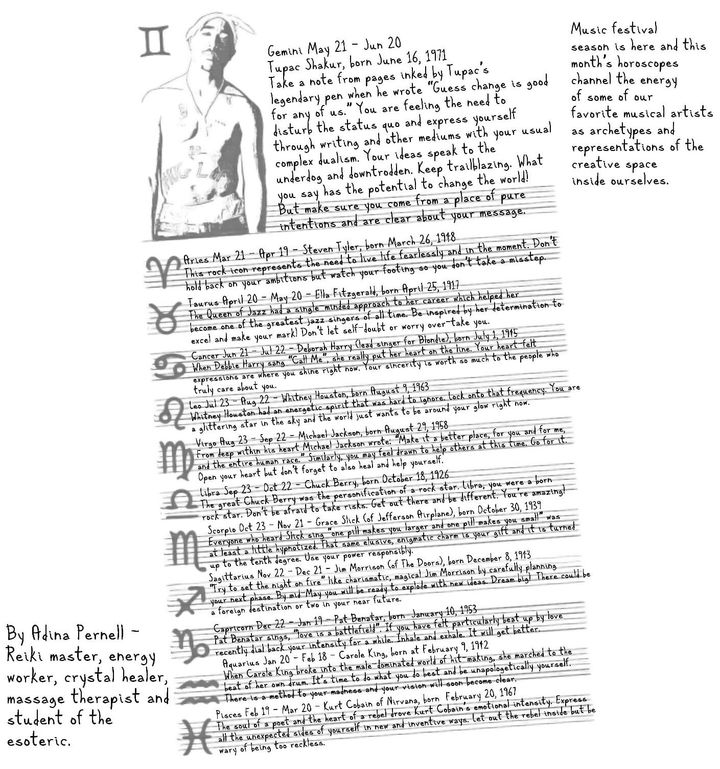 Gemini May 21 - Jun 20
Tupac Shakur, born June 16, 1971
Take a note from pages inked by Tupac's
legendary pen when he wrote "Guess change is good
for any of us." You are feeling the need to
disturb the status quo and express yourself
through writing and other mediums with your usual
complex dualism. Your ideas speak to the
underdog and downtrodden. Keep trailblazing. What
you say has the potential to change the world!
But make sure you come from a place of pure
intentions and are clear about your message.
Music festival
season is here and this
month's horoscopes
channel the energy
of some of our
favorite musical artists
as archetypes and
representations of the
creative space
inside ourselves.
Aries Mar 21 - Apr 19 - Steven Tyler, born March 26, 1948
This rock icon represents the need to live life fearlessly and in the moment. Don't
hold back on your ambitions but watch your footing so you don't take a misstep.
Taurus April 20 - May 20 - Ella Fitzgerald, born April 25, 1917
The Queen of Jazz had a single-minded approach to her career which helped her
become one of the greatest jazz singers of all time. Be inspired by her determination to
excel and make your mark! Don't let self-doubt or worry over-take you.
Cancer Jun 21 - Jul 22 - Deborah Harry (lead singer for Blondie), born July 1, 1945
When Debbie Harry sang "Call Me", she really put her heart on the line. Your heart felt
expressions are where you shine right now. Your sincerity is worth so much to the people who
truly care about you.
Leo Jul 23 - Aug 22 - Whitney Houston, born August 9, 1963
Whitney Houston had an energetic spirit that was hard to ignore. Lock onto that frequency. You are
a glittering star in the sky and the world just wants to be around your glow right now.
Virgo Aug 23 - Sep 22 - Michael Jackson, born August 29, 1958
From deep within his heart Michael Jackson wrote: "Make it a better place, for you and for me,
and the entire human race." Similarly, you may feel drawn to help others at this time. Go for it.
Open your heart but don't forget to also heal and help yourself.
Libra Sep 23 - Oct 22 - Chuck Berry, born October 18, 1926
The great Chuck Berry was the personification of a rock star. Libra, you were a born
rock star. Don't be afraid to take risks. Get out there and be different. You're amazing!
Scorpio Oct 23 - Nov 21 - Grace Slick (of Jefferson Airplane), born October 30, 1939
Everyone who heard Slick sing "one pill makes you larger and one pill makes you small" was
at least a little hypnotized. That same elusive, enigmatic charm is your gift and it is turned
up to the tenth degree. Use your power responsibly.
Sagittarius Nov 22 - Dec 21 - Jim Morrison (of The Doors), born December 8, 1943
"Try to set the night on fire" like charismatic, magical Jim Morrison by carefully planning
your next phase. By mid-May you will be ready to explode with new ideas. Dream big! There could be
a foreign destination or two in your near future.
Capricorn Dec 22 - Jan 19 - Pat Benatar, born January 10, 1953
Pat Benatar sings, "love is a battlefield". If you have felt particularly beat up by love
recently dial back your intensity for a while. Inhale and exhale. It will get better.
Aquarius Jan 20 - Feb 18 - Carole King, born at February 9, 1942
When Carole King broke into the male-dominated world of hit-making, she marched to the
beat of her own drum. It's time to do what you do best and be unapologetically yourself.
There is a method to your madness and your vision will soon become clear.
Pisces Feb 19 - Mar 20 - Kurt Cobain of Nirvana, born February 20, 1967
The soul of a poet and the heart of a rebel drove Kurt Cobain's emotional intensity. Express
all the unexpected sides of yourself in new and inventive ways. Let out the rebel inside but be
wary of being too reckless.
By Adina Pernell -
Reiki master, energy
worker, crystal healer,
massage therapist and
student of the
esoteric.